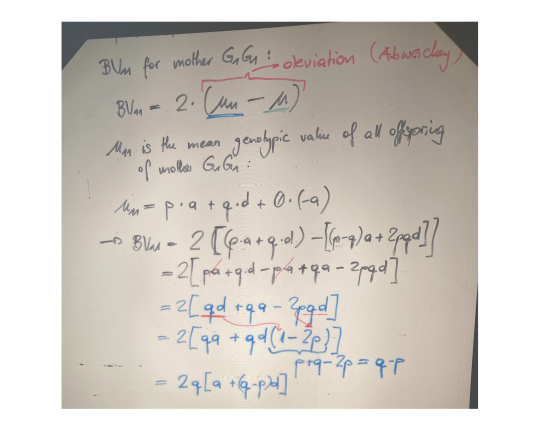 BV₁₁ for mother G₁G₁ : → deviation (Abwachey)
BV₁₁ = 2 · (μ₁₁ − μ)
μ₁₁ is the mean genotypic value of all offspring
of mother G₁G₁ :
μ₁₁ = p · a + q · d + 0 · (-a)
→ BV₁₁ = 2 [(p·a + q·d) − [(p-q)a + 2pqd]]
= 2[pa + q·d − p·a + qa − 2pqd]
= 2[qd + qa − 2pqd]
= 2[qa + qd(1−2p)]
p+q−2p = q-p
= 2q[a + (q-p)d]